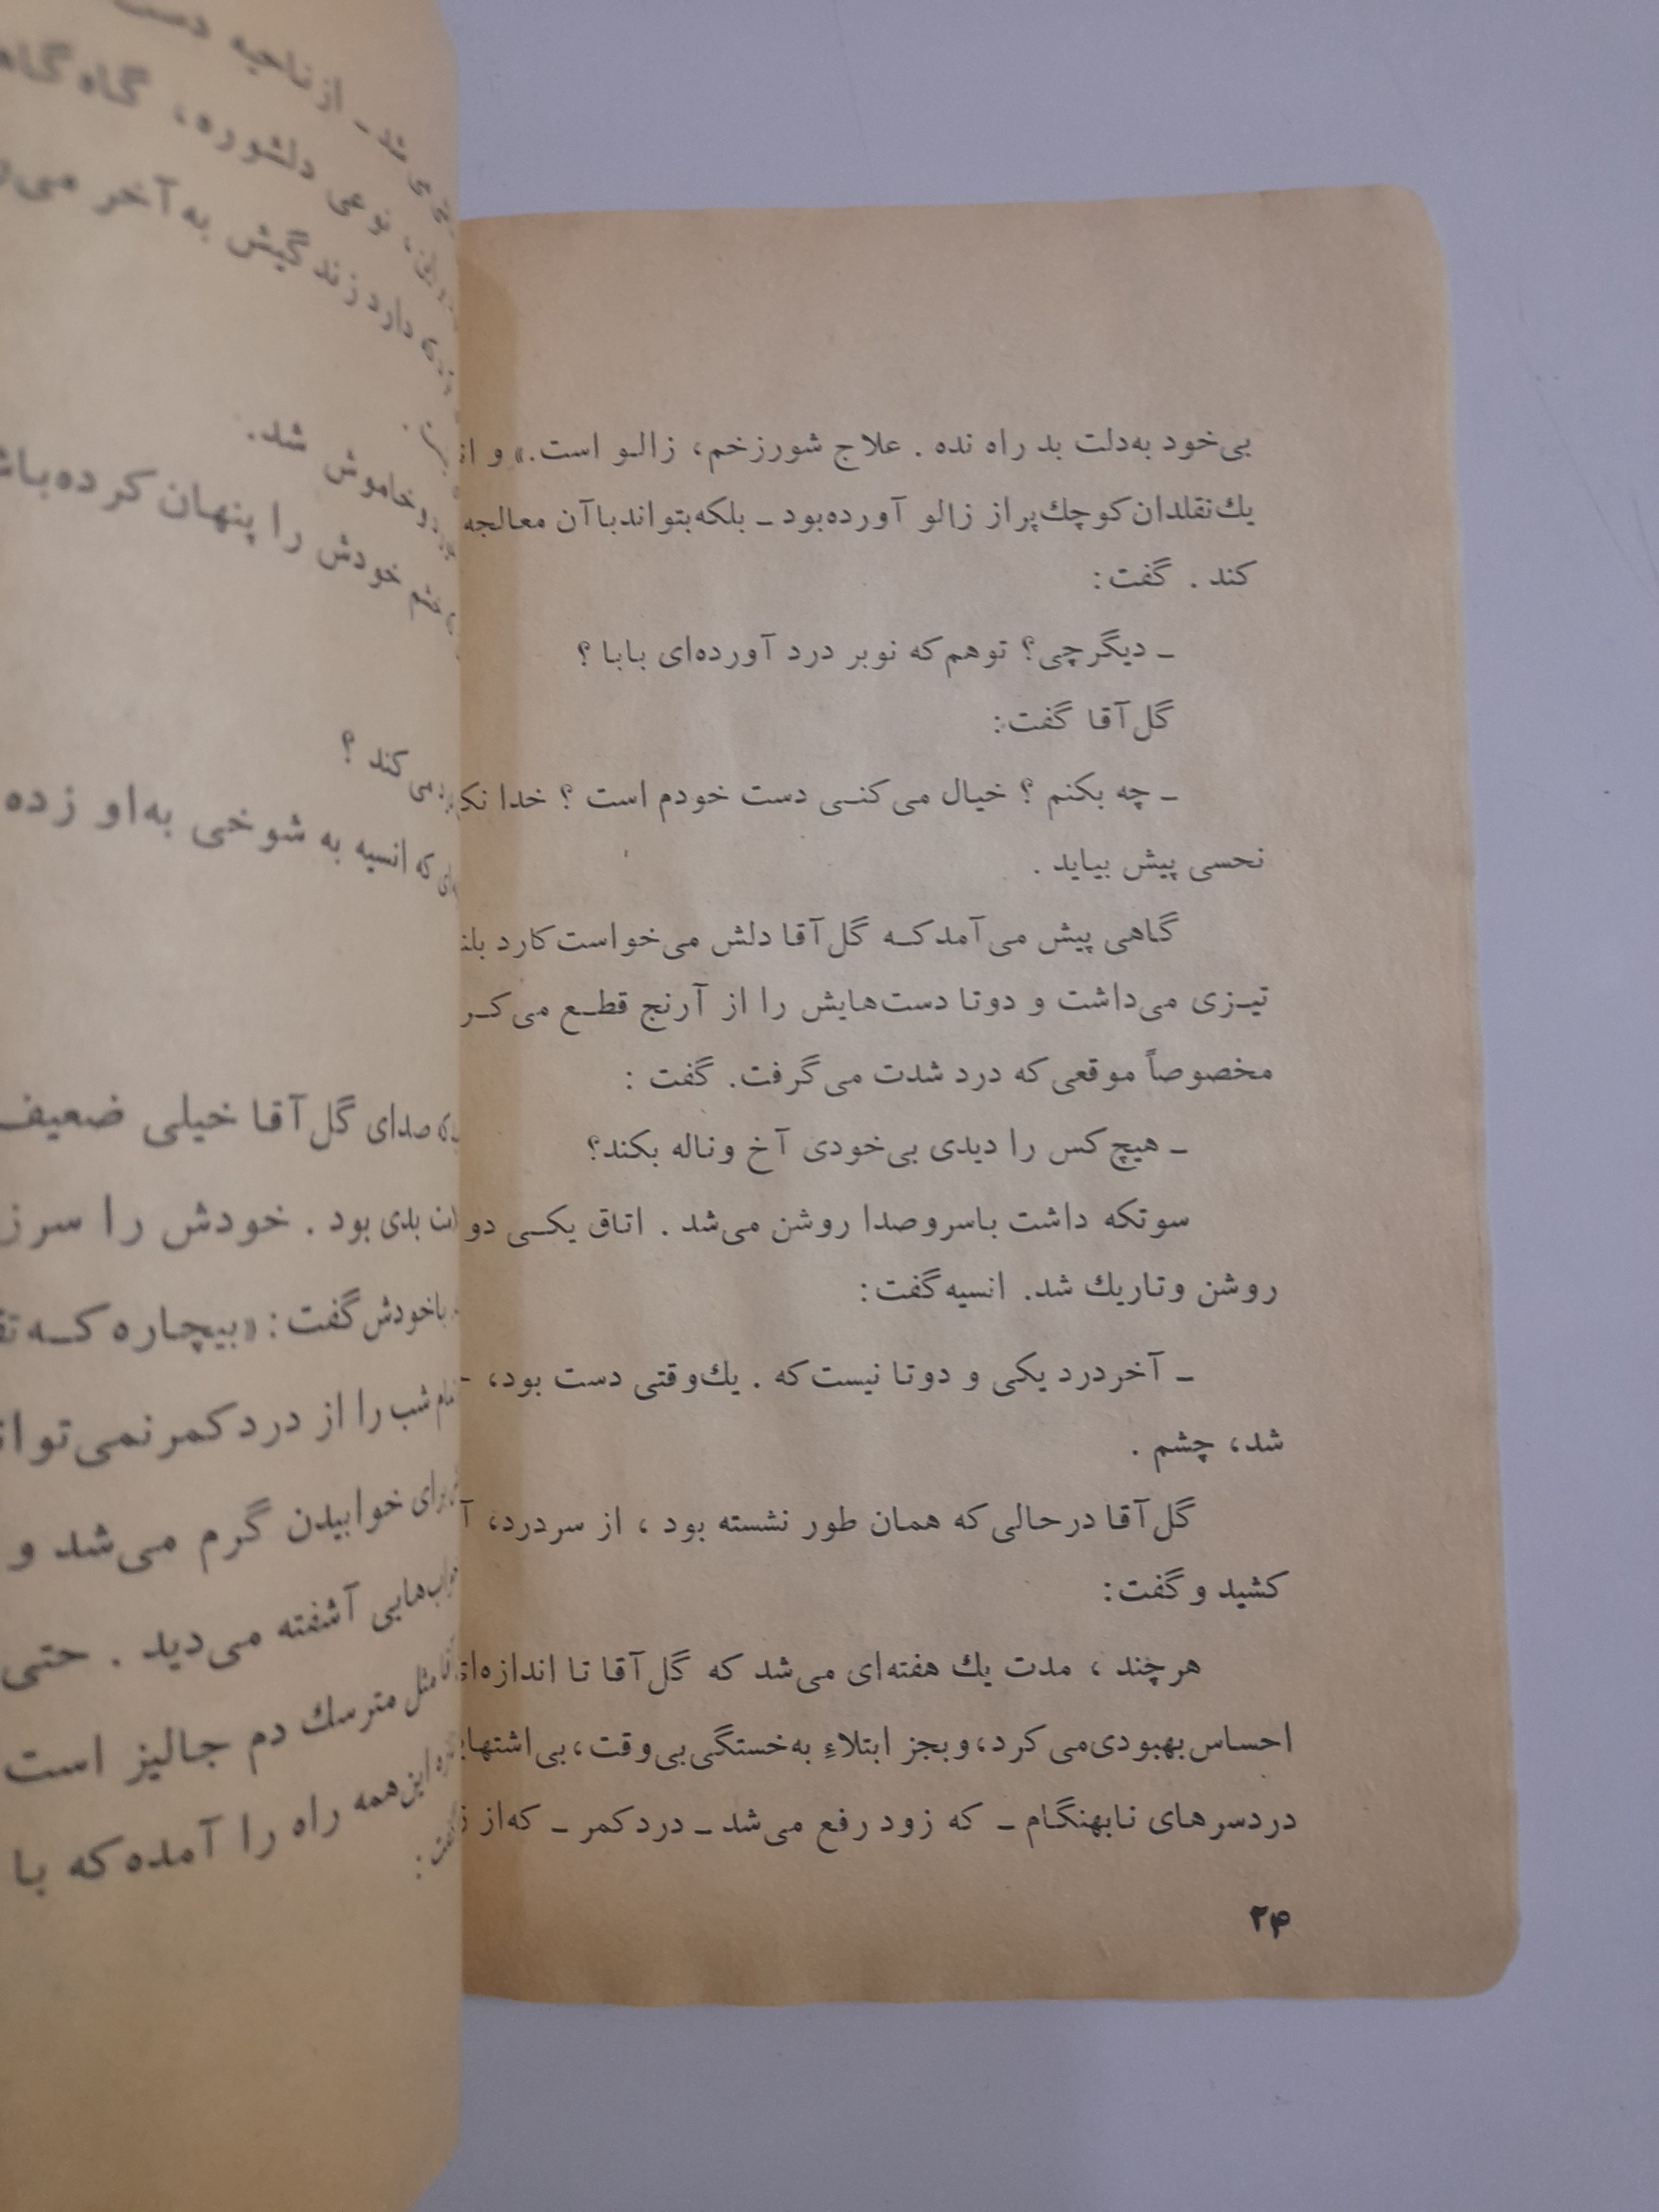 بی‌خود به‌دلت بد راه نده . علاج شورزخم، زالو است.» و
یك‌نقلدان‌کوچك‌پراز زالو آورده‌بود ـ بلکه‌بتواندباآن معالجه
کند . گفت:
ـ دیگرچی؟ توهم‌که نوبر درد آورده‌ای بابا ؟
گل‌آقا گفت:
ـ چه بکنم ؟ خیال می‌کنی دست خودم است ؟ خدا
نحسی پیش بیاید .
گاهی پیش می‌آمدکه گل‌آقا دلش می‌خواست‌کارد
تیزی می‌داشت و دوتا دست‌هایش را از آرنج قطع
مخصوصاً موقعی‌که درد شدت می‌گرفت. گفت :
ـ هیچ‌کس را دیدی بی‌خودی آخ و‌ناله بکند؟
سوتکه داشت باسروصدا روشن می‌شد . اتاق یکی دو
روشن و‌تاریك شد. انسیه‌گفت:
ـ آخردرد یکی و دوتا نیست‌که . یك‌وقتی دست بود،
شد، چشم .
گل‌آقا درحالی‌که همان طور نشسته بود ، از سردرد،
کشید و گفت:
هرچند ، مدت یك هفته‌ای می‌شد که گل‌آقا تا
احساس‌بهبودی‌می‌کرد، و‌بجز ابتلاءِ به‌خستگی‌بی‌وقت،
دردسرهای نابهنگام ـ که زود رفع می‌شد ـ دردکمر ـ که‌از
۲۴
شد ـ ازناحیه
نوعی دلشوره، گاه
دارد زندگیش به‌آخر
و‌خاموش شد.
خودش را پنهان‌کرده‌باشد
می‌کند ؟
که انسیه به شوخی به‌او زده
صدای گل‌آقا خیلی ضعیف
بدی بود . خودش را
باخودش‌گفت: «بیچاره که
شب را از دردکمر
برای خوابیدن گرم می‌شد و
آشفته می‌دید . حتی
مثل مترسك دم جالیز است
این‌همه راه را آمده‌که با